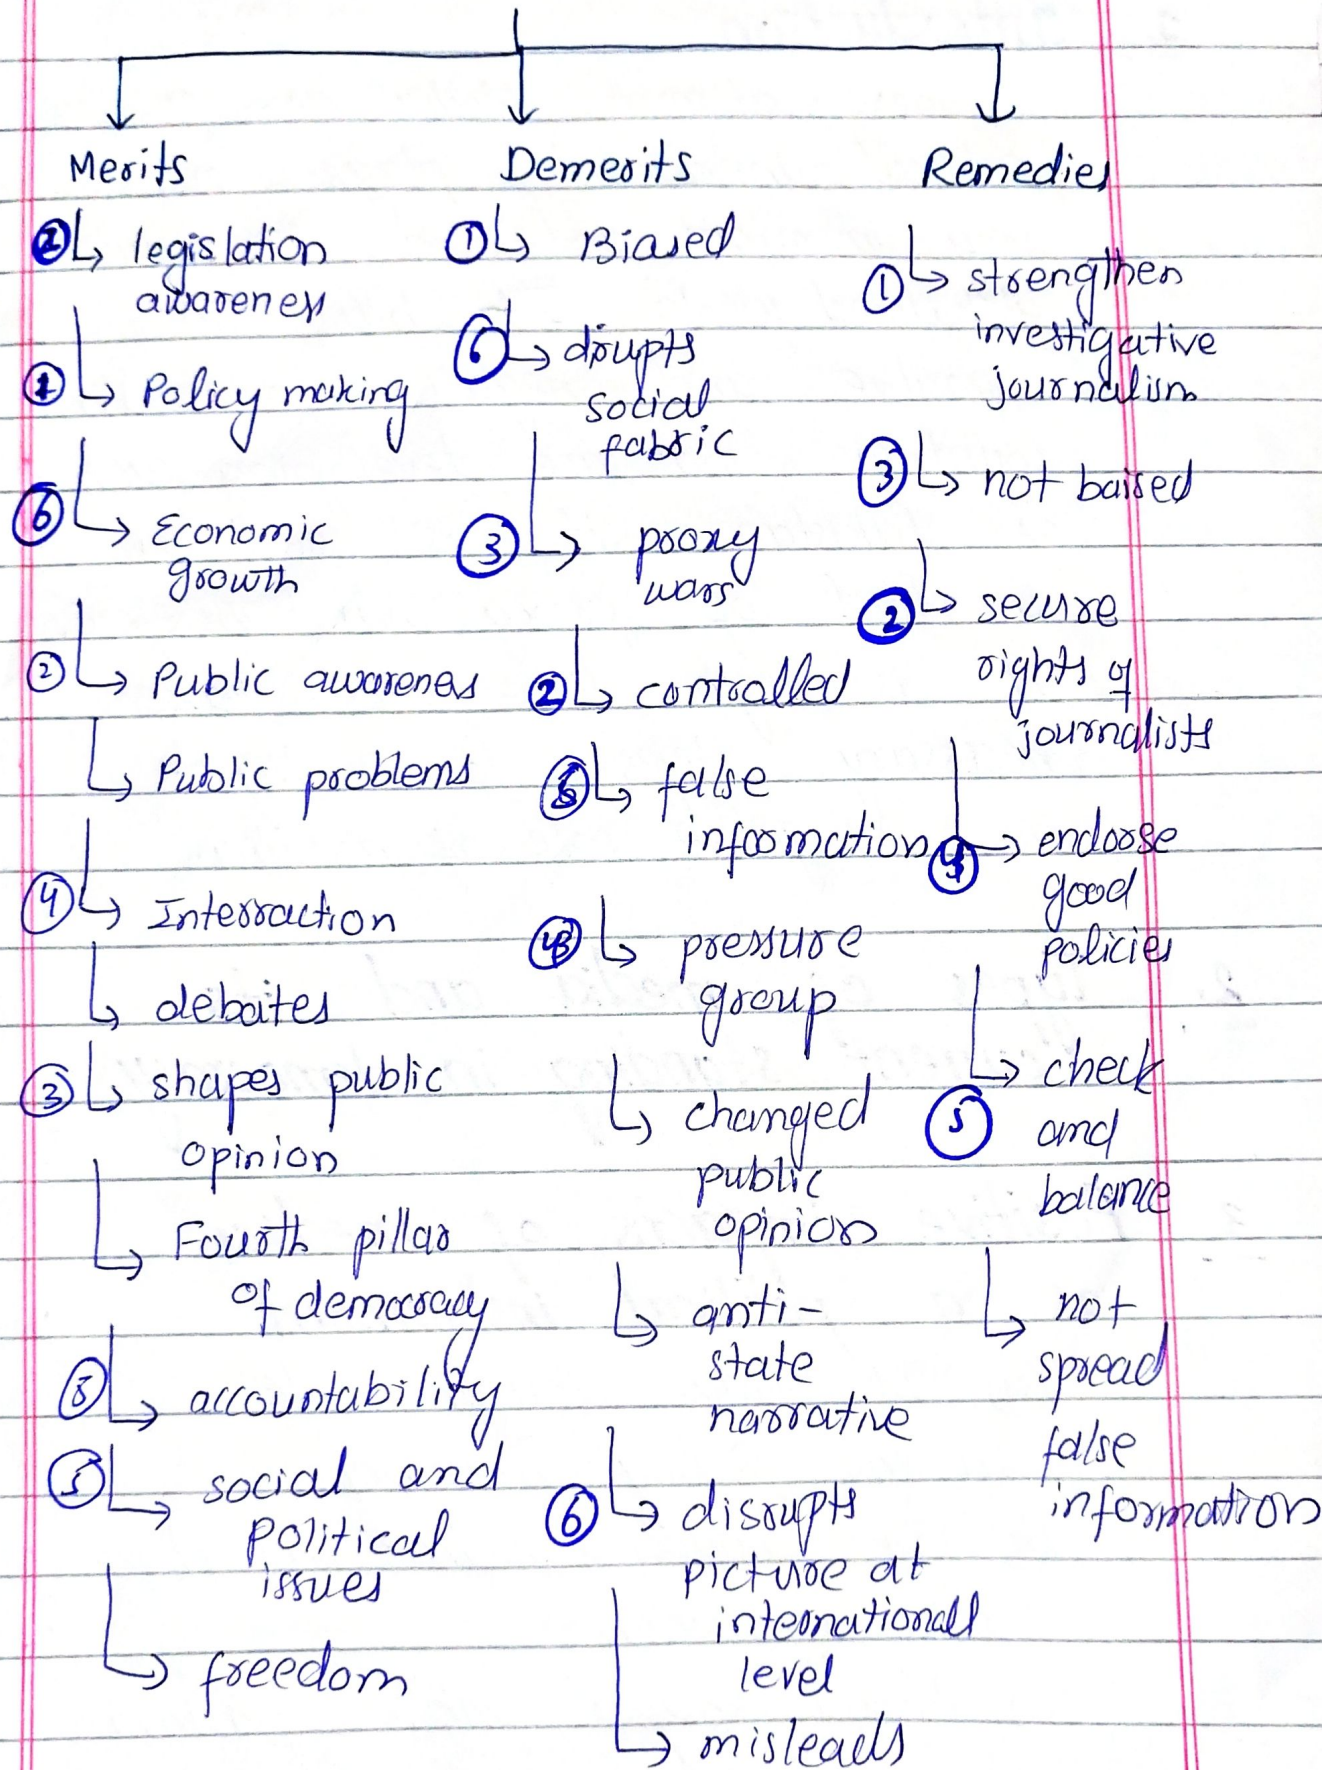 Merits
② legislation
awareness
① Policy making
⑥ Economic
growth
② Public awareness
Public problems
④ Interraction
debaites
③ shapes public
opinion
Fourth pillar
of democracy
accountability
⑤ social and
political
issues
freedom
Demerits
① Biased
⑥ disrupts
social
fabric
③ proxy
wars
② controlled
false
information
pressure
group
changed
public
opinion
anti-
state
narrative
⑥ disrupts
picture at
internationall
level
misleads
Remedies
① strengthen
investigative
journalism
③ not baised
② secure
rights of
journalists
endorse
good
policies
⑤ check
and
balance
not
spread
false
information